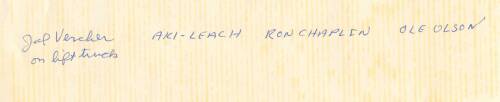 Jal Vercher AKI-LEACH RON CHAPLIN OLE OLSON
on lift truck